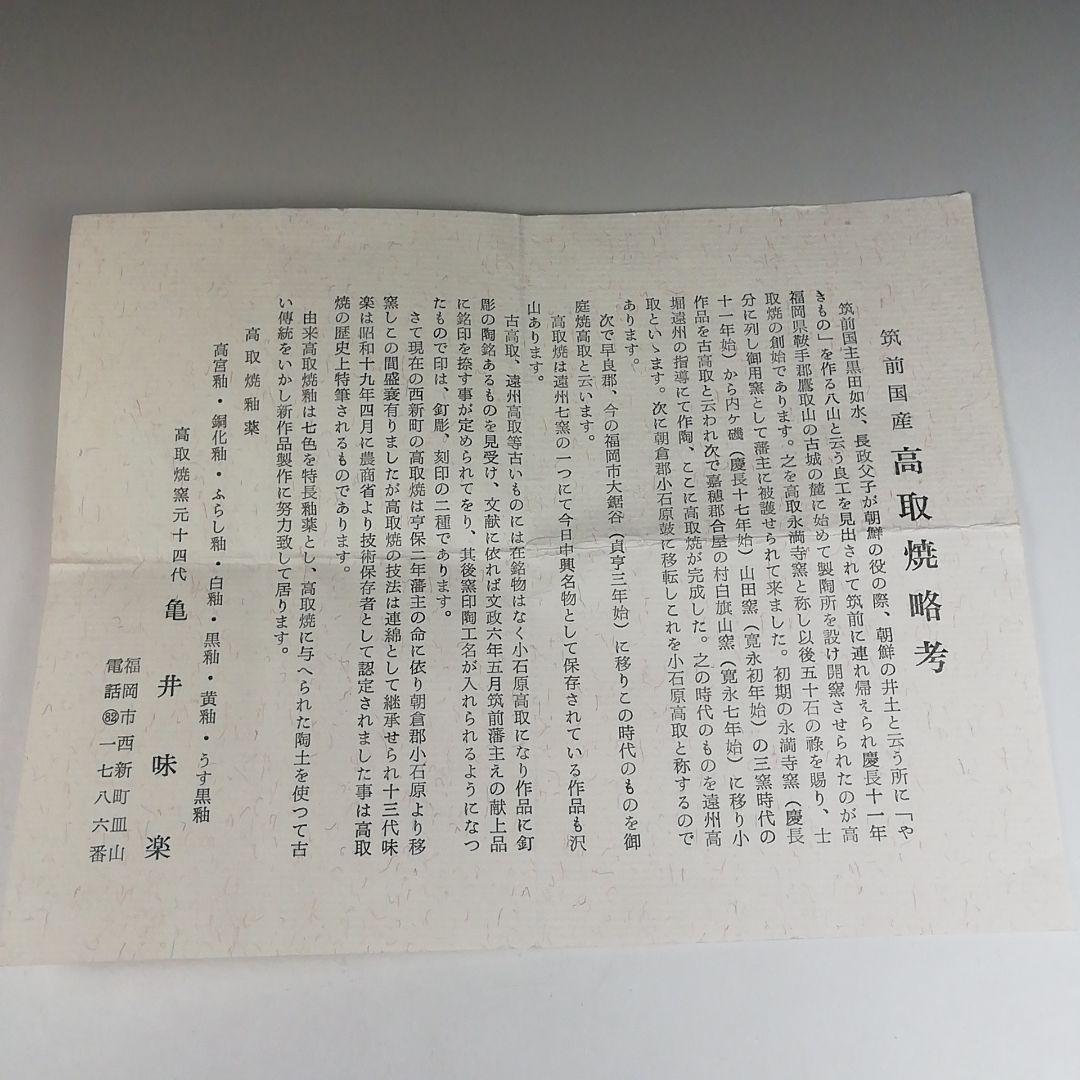 筑前国産 高取焼略考
筑前国主黒田如水、長政父子が朝鮮の役の際、朝鮮の井土と云う所に「や
きもの」を作る八山と云う良工を見出されて筑前に連れ帰えられ慶長十一年
福岡県鞍手郡鷹取山の古城の麓に始めて製陶所を設け開窯させられたのが高
取焼の創始であります。之を高取永満寺窯と称し以後五十石の祿を賜り、士
分に列し御用窯として藩主に被護せられて来ました。初期の永満寺窯（慶長
十一年始）から内ヶ磯（慶長十七年始）山田窯（寛永初年始）の三窯時代の
作品を古高取と云われ次で嘉穂郡合屋の村白旗山窯（寛永七年始）に移り小
堀遠州の指導にて作陶、ここに高取焼が完成した。之の時代のものを遠州高
取といゝます。次に朝倉郡小石原鼓に移転しこれを小石原高取と称するので
あります。
次で早良郡、今の福岡市大鋸谷（貞亨三年始）に移りこの時代のものを御
庭焼高取と云います。
高取焼は遠州七窯の一つにて今日中興名物として保存されている作品も沢
山あります。
古高取、遠州高取等古いものには在銘物はなく小石原高取になり作品に釘
彫の陶銘あるものを見受け、文献に依れば文政六年五月筑前藩主えの献上品
に銘印を捺す事が定められてをり、其後窯印陶工名が入れられるようになつ
たもので印は、釘彫、刻印の二種であります。
さて現在の西新町の高取焼は亨保二年藩主の命に依り朝倉郡小石原より移
窯しこの間盛衰有りましたが高取焼の技法は連綿として継承せられ十三代味
楽は昭和十九年四月に農商省より技術保存者として認定されました事は高取
焼の歴史上特筆されるものであります。
由来高取焼釉は七色を特長釉薬とし、高取焼に与へられた陶土を使つて古
い傳統をいかし新作品製作に努力致して居ります。
高取焼釉薬
高宮釉・銅化釉・ふらし釉・白釉・黒釉・黄釉・うす黒釉
高取焼窯元十四代 亀井味楽
福岡市西新町皿山
電話㊷一七八六番